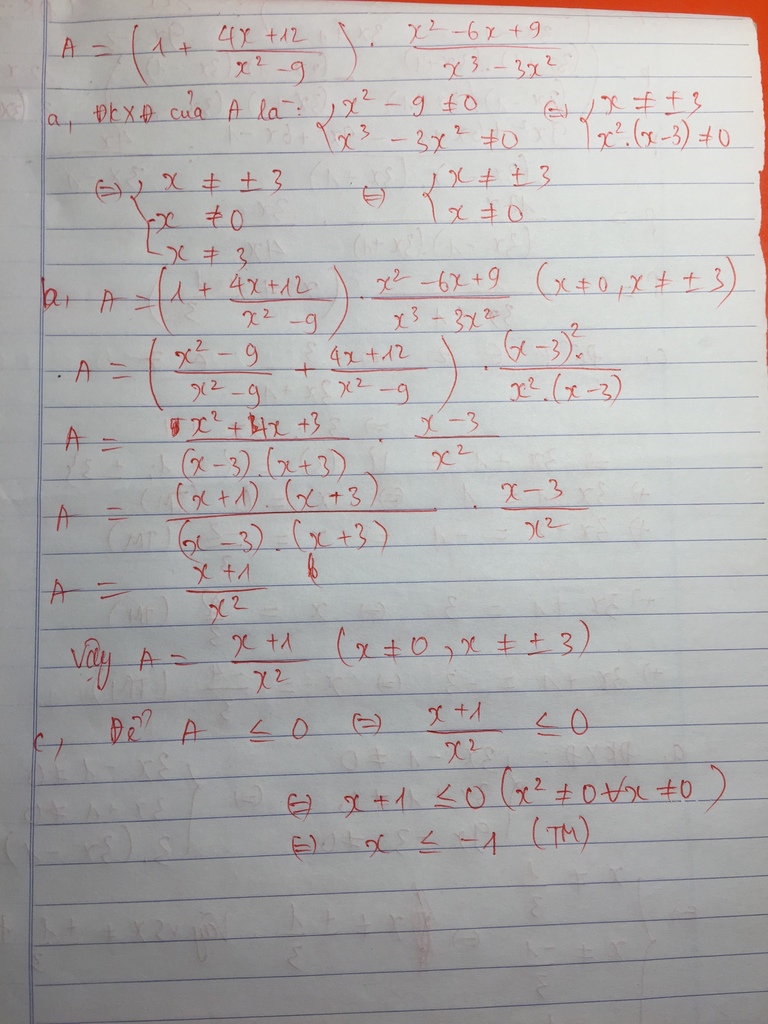 A = (1 + (4x+12)/(x² - 9)) . (x² - 6x + 9)/(x³ - 3x²)
a, ĐKXĐ của A là: { x² - 9 ≠ 0 ; x³ - 3x² ≠ 0 ⇔ { x ≠ ±3 ; x².(x-3) ≠ 0
⇔ { x ≠ ±3 ; x ≠ 0 ; x ≠ 3 ⇔ { x ≠ ±3 ; x ≠ 0
b, A = (1 + (4x+12)/(x² - 9)) . (x² - 6x + 9)/(x³ - 3x²) (x ≠ 0, x ≠ ±3)
A = ((x² - 9)/(x² - 9) + (4x+12)/(x² - 9)) . (x-3)²/(x².(x-3))
A = (x² + 4x + 3)/((x-3).(x+3)) . (x-3)/x²
A = ((x+1).(x+3))/((x-3).(x+3)) . (x-3)/x²
A = (x+1)/x²
Vậy A = (x+1)/x² (x ≠ 0, x ≠ ±3)
c, Để A ≤ 0 ⇔ (x+1)/x² ≤ 0
⇔ x+1 ≤ 0 (x² ≠ 0 ∀x ≠ 0)
⇔ x ≤ -1 (TM)